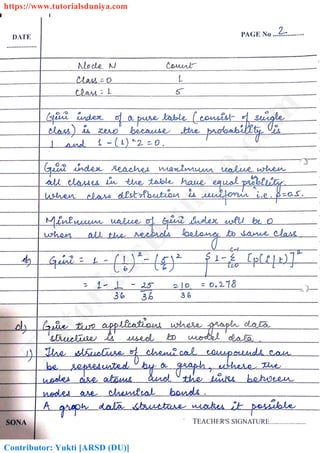 https://www.tutorialsduniya.com
DATE
PAGE No 2
Node N Count
Class = 0 1
Class = 1 5
Gini index of a pure table (consist of single
class) is zero because the probability is
1 and 1 - (1)^2 = 0.
Gini index reaches maximum value when
all classes in the table have equal probability.
When class distribution is uniform i.e. p=0.5.
Minimum value of Gini index will be 0
when all the records belong to same class.
Gini = 1 - (1/6)² - (5/6)² { 1 - Σ [p(i|t)]²
= 1 - 1/36 - 25/36 = 10/36 = 0.278
d) Give two applications where graph data
structure is used to model data.
1) The structure of chemical compounds can
be represented by a graph, where the
nodes are atoms and the links between
nodes are chemical bonds.
A graph data structure makes it possible
SONA
TEACHER'S SIGNATURE
Contributor: Yukti [ARSD (DU)]